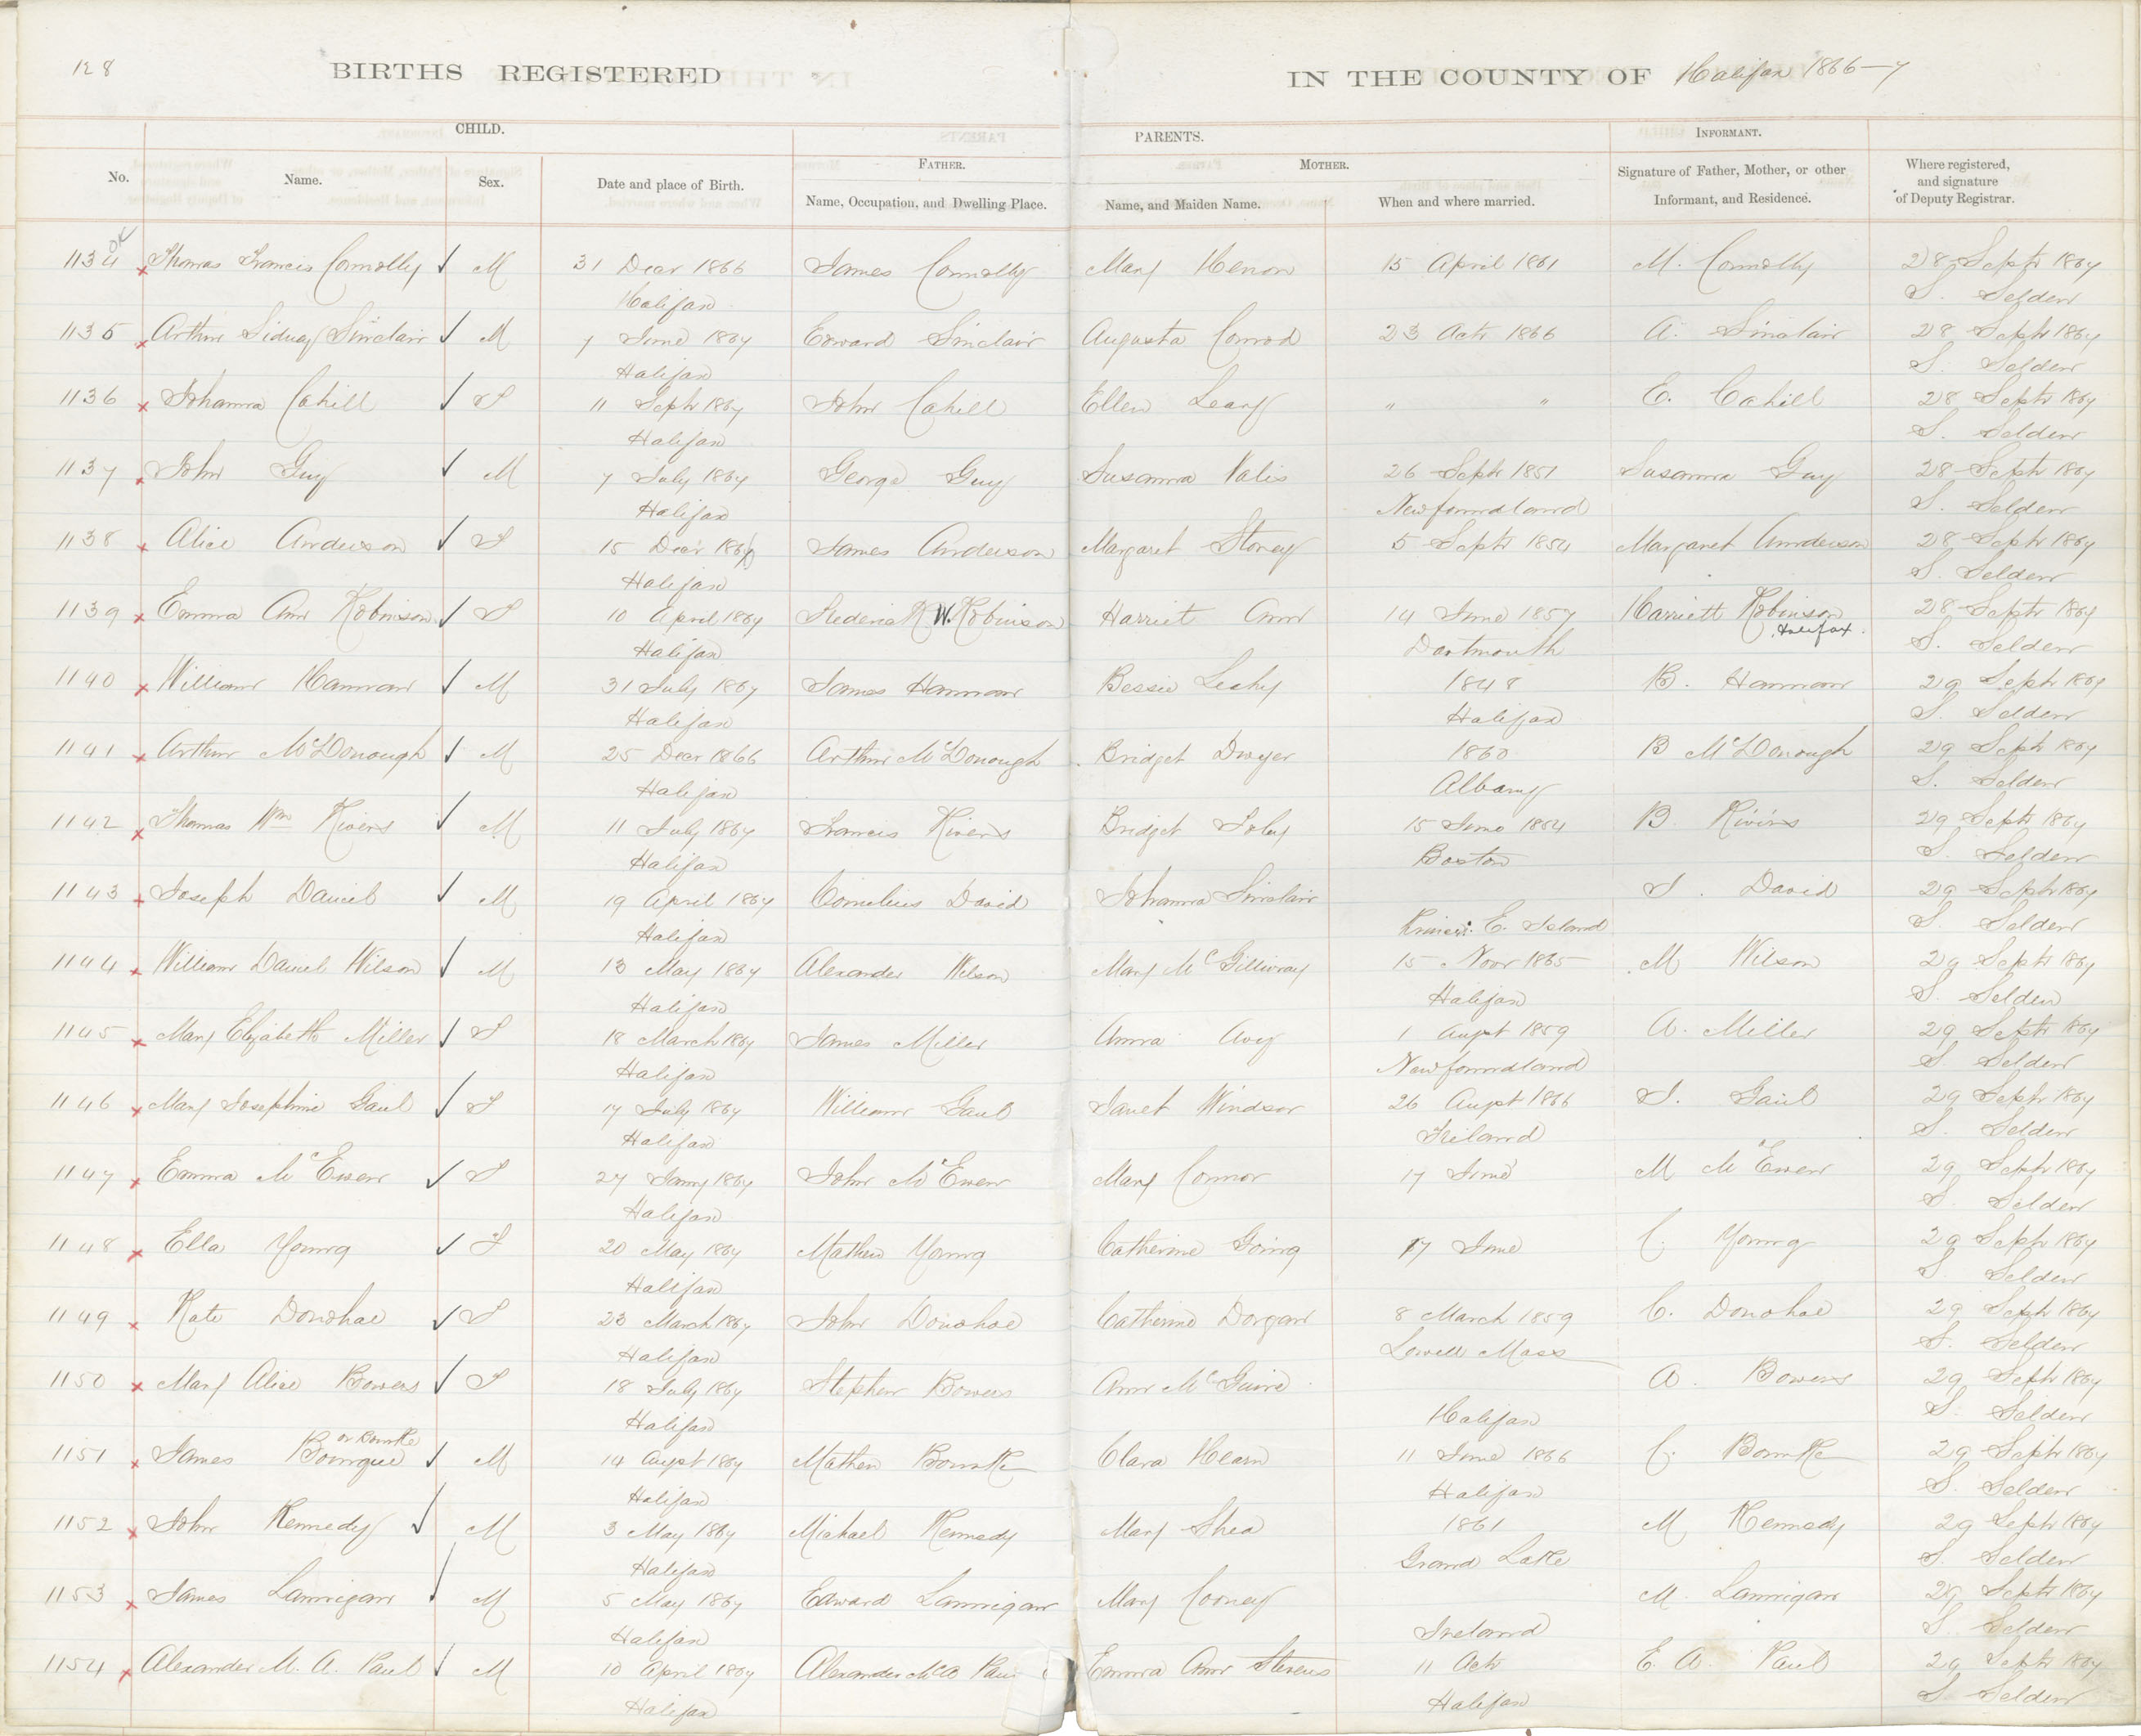 128
BIRTHS REGISTERED IN THE COUNTY OF Halifax 1866-7
CHILD. PARENTS. INFORMANT.
FATHER. MOTHER.
No. Name. Sex. Date and place of Birth. Name, Occupation, and Dwelling Place. Name, and Maiden Name. When and where married. Signature of Father, Mother, or other Informant, and Residence. Where registered, and signature of Deputy Registrar.
OK
1134 x Thomas Francis Connolly ✓ M 31 Decr 1866 James Connolly Mary 15 April 1861 M. Connolly 28 Septr 1867
Halifax S. Selden
1135 x Arthur Sidney Sinclair ✓ M 7 June 1867 Edward Sinclair Augusta Conrod 23 Octr 1866 A. Sinclair 28 Septr 1867
Halifax S. Selden
1136 x Johanna Cahill ✓ F 11 Septr 1867 John Cahill Ellen Leary " " E. Cahill 28 Septr 1867
Halifax S. Selden
1137 x John Guy ✓ M 7 July 1867 George Guy Susanna Valis 26 Septr 1851 Susanna Guy 28 Septr 1867
Halifax Newfoundland S. Selden
1138 x Alice Anderson ✓ F 15 Decr James Anderson Margaret Storey 5 Septr 1854 Margaret Anderson 28 Septr 1867
Halifax S. Selden
1139 x Emma Ann Robinson ✓ F 10 April 1867 Frederick W. Robinson Harriet Ann 14 June 1857 Harriett Robinson 28 Septr 1867
Halifax Dartmouth Halifax. S. Selden
1140 x William Hannan ✓ M 31 July 1867 James Hannan Bessie Leahy 1848 B. Hannan 29 Septr 1867
Halifax Halifax S. Selden
1141 x Arthur McDonough ✓ M 25 Decr 1866 Arthur McDonough Bridget Dwyer 1860 B McDonough 29 Septr 1867
Halifax Albany S. Selden
1142 x Thomas Wm Rivers ✓ M 11 July 1867 Francis Rivers Bridget Foley 15 June 1854 B Rivirs 29 Septr 1867
Halifax Boston S. Selden
1143 x Joseph David ✓ M 19 April 1867 Cornelius David Johanna Sinclair J. David 29 Septr 1867
Halifax Prince E. Island S. Selden
1144 x William Daniel Wilson ✓ M 13 May 1867 Alexander Wilson Mary McGillivray 15 Novr 1865 M Wilson 29 Septr 1867
Halifax Halifax S. Selden
1145 x Mary Elizabeth Miller ✓ F 18 March 1867 James Miller Anna Avy 1 Augst 1859 A. Miller 29 Septr 1867
Halifax Newfoundland S Selden
1146 x Mary Josephine Gaul ✓ F 17 July 1867 William Gaul Janet Windsor 26 Augst 1866 J. Gaul 29 Septr 1867
Halifax Ireland S. Selden
1147 x Emma McEwen ✓ F 27 Jany 1867 John McEwen Mary Connor 17 June M McEwen 29 Septr 1867
Halifax S. Selden
1148 x Ella Young ✓ F 20 May 1867 Mathew Young Catherine Going 17 June C. Young 29 Septr 1867
Halifax S. Selden
1149 x Kate Donohoe ✓ F 23 March 1867 John Donohoe Catherine Dorgan 8 March 1859 C. Donohoe 29 Septr 1867
Halifax Lowell Mass S. Selden
1150 x Mary Alice Bowers ✓ F 18 July 1867 Stephen Bowers Ann McGuire A. Bowers 29 Septr 1867
Halifax Halifax S. Selden
or Bourke
1151 x James Bourque ✓ M 14 Augst 1867 Mathew Bourke Clara Hearn 11 June 1866 C. Bourke 29 Septr 1867
Halifax Halifax S. Selden
1152 x John Kennedy ✓ M 3 May 1867 Michael Kennedy Mary Shea 1861 M Kennedy 29 Septr 1867
Halifax Grand Lake S. Selden
1153 x James Lannigan ✓ M 5 May 1867 Edward Lannigan Mary Cooney M. Lannigan 29 Septr 1867
Halifax Ireland S. Selden
1154 x Alexander M. A. Paul ✓ M 10 April 1867 Alexander McA Emma Ann Stevens 11 Octr E. A. Paul 29 Septr 1867
Halifax Halifax S. Selden